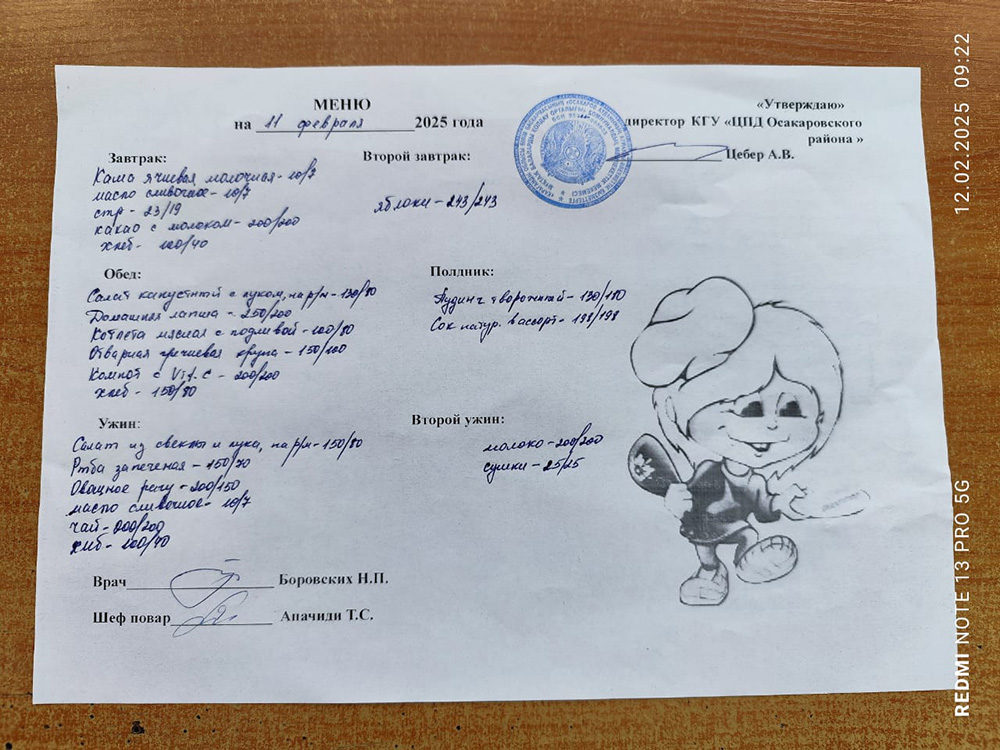 МЕНЮ
на 11 февраля 2025 года
«Утверждаю»
директор КГУ «ЦПД Осакаровского
района »
Цебер А.В.
Завтрак:
Каша ячневая молочная - 10/7
масло сливочное - 10/7
сыр - 23/19
какао с молоком - 200/200
хлеб - 100/40
Второй завтрак:
яблоки - 243/243
Обед:
Салат капустный с луком, на р/м - 130/80
Домашняя лапша - 250/200
Котлета мясная с подливой - 100/80
Отварная гречневая крупа - 150/100
Компот с Vit. C - 200/200
хлеб - 150/80
Полдник:
Пудинг творожный - 130/180
Сок натур. в ассорт - 198/198
Ужин:
Салат из свеклы и лука, на р/м - 150/80
Рыба запеченая - 150/70
Овощное рагу - 200/150
масло сливочное - 10/7
чай - 200/200
хлеб - 100/40
Второй ужин:
молоко - 200/200
сушки - 25/25
Врач Боровских Н.П.
Шеф повар Апачиди Т.С.
REDMI NOTE 13 PRO 5G
12.02.2025 09:22